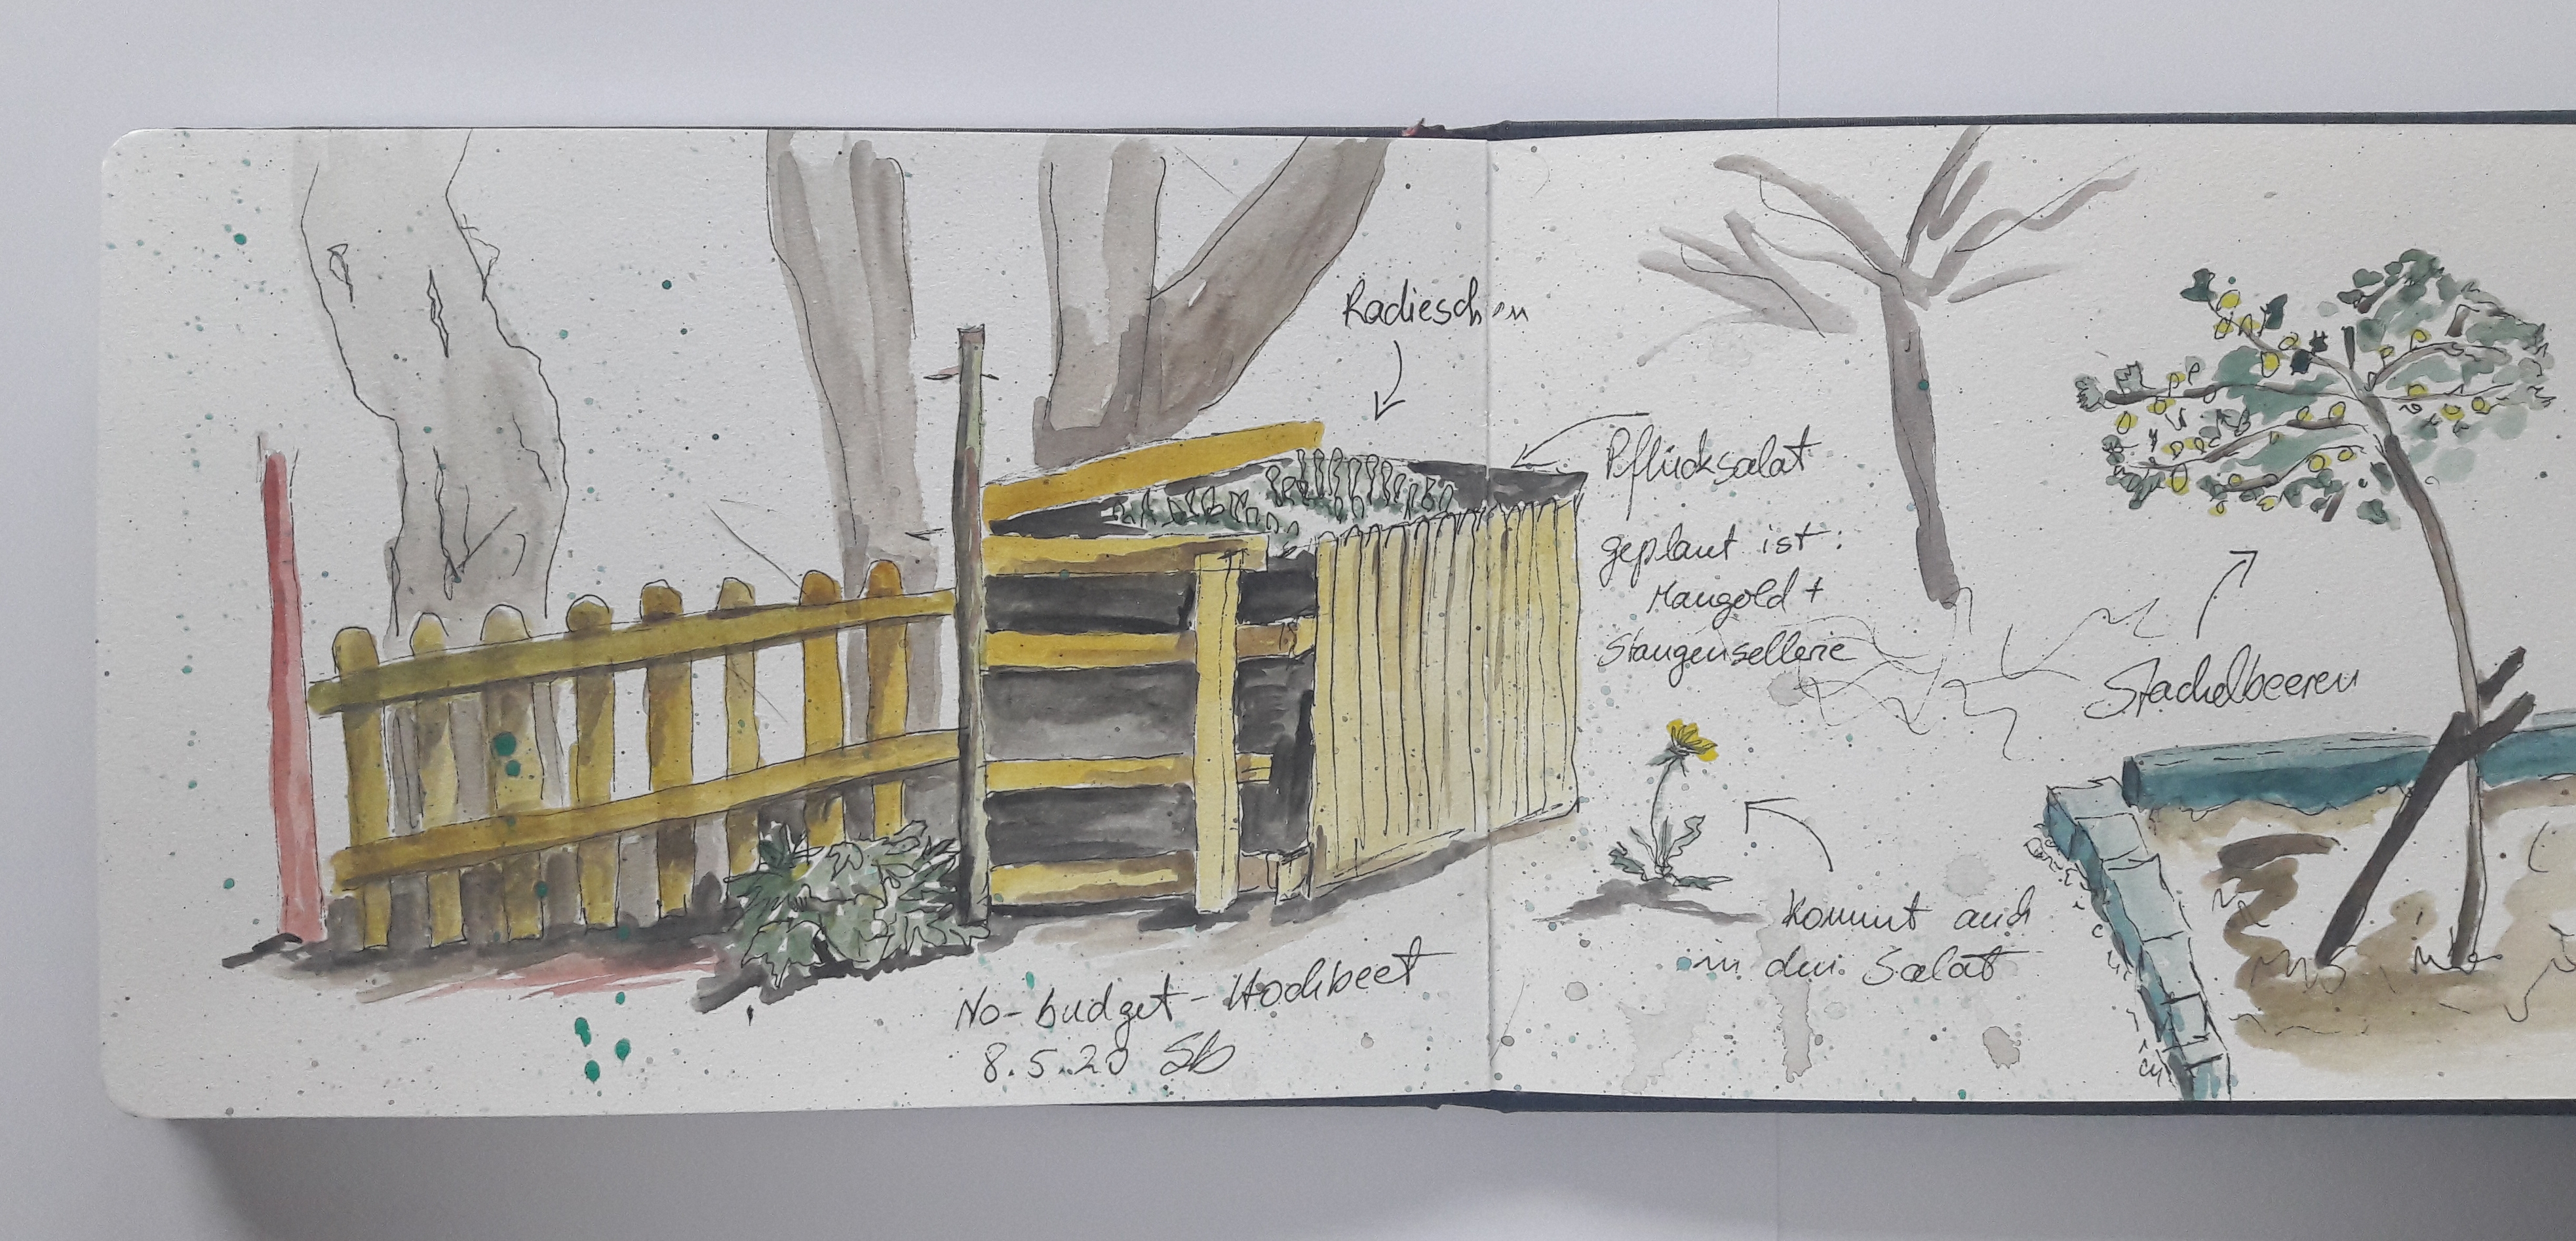 Radieschen
Pflücksalat
geplant ist:
Mangold +
Stangensellerie
Stachelbeeren
kommt auch
in den Salat
No-budget-Hochbeet
8.5.20 Sb